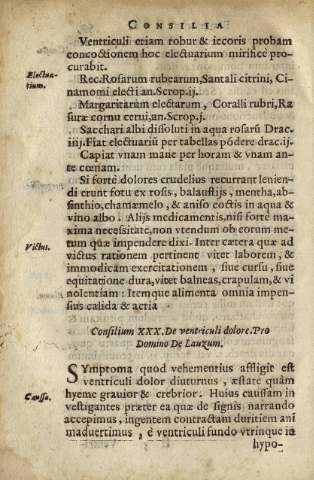 CONSILIA
Ventriculi etiam robur & iecoris probam
concoctionem hoc electuarium mirificè pro-
curabit.
Electua-
rium.
Rec. Rosarum rubearum, Santali citrini, Ci-
namomi electi an. Scrop. ij.
Margaritarum electarum, Coralli rubri, Ra
suræ cornu cerui, an Scrop. ij.
Sacchari albi dissoluti in aqua rosarũ Drac.
iiij. Fiat electuariũ per tabellas põdere drac. ij.
Capiat vnam mane per horam & vnam an-
te cœnam.
Si fortè dolores crudelius recurrant lenien-
di erunt fotu ex rosis, balaustijs, mentha, ab-
sinthio, chamæmelo, & aniso coctis in aqua &
vino albo. Alijs medicamentis, nisi fortè ma-
xima necessitate, non vtendum ob eorum me-
tum quæ impendere dixi. Inter cætera quæ ad
Victus.
victus rationem pertinent vitet laborem, &
immodicam exercitationem, siue cursu, siue
equitatione dura, vitet balneas, crapulam, & vi
nolentiam: Itemque alimenta omnia impen-
sius calida & acria
Consilium XXX. De ventriculi dolore. Pro
Domino De Lauzum.
SYmptoma quod vehementius affligit est
ventriculi dolor diuturnus, æstate quàm
hyeme grauior & crebrior. Huius caussam in
Caussa.
vestigantes præter ea quæ de signis narrando
accepimus, ingentem contractam duritiem ani
maduertimus, è ventriculi fundo vtrinque in
hypo-